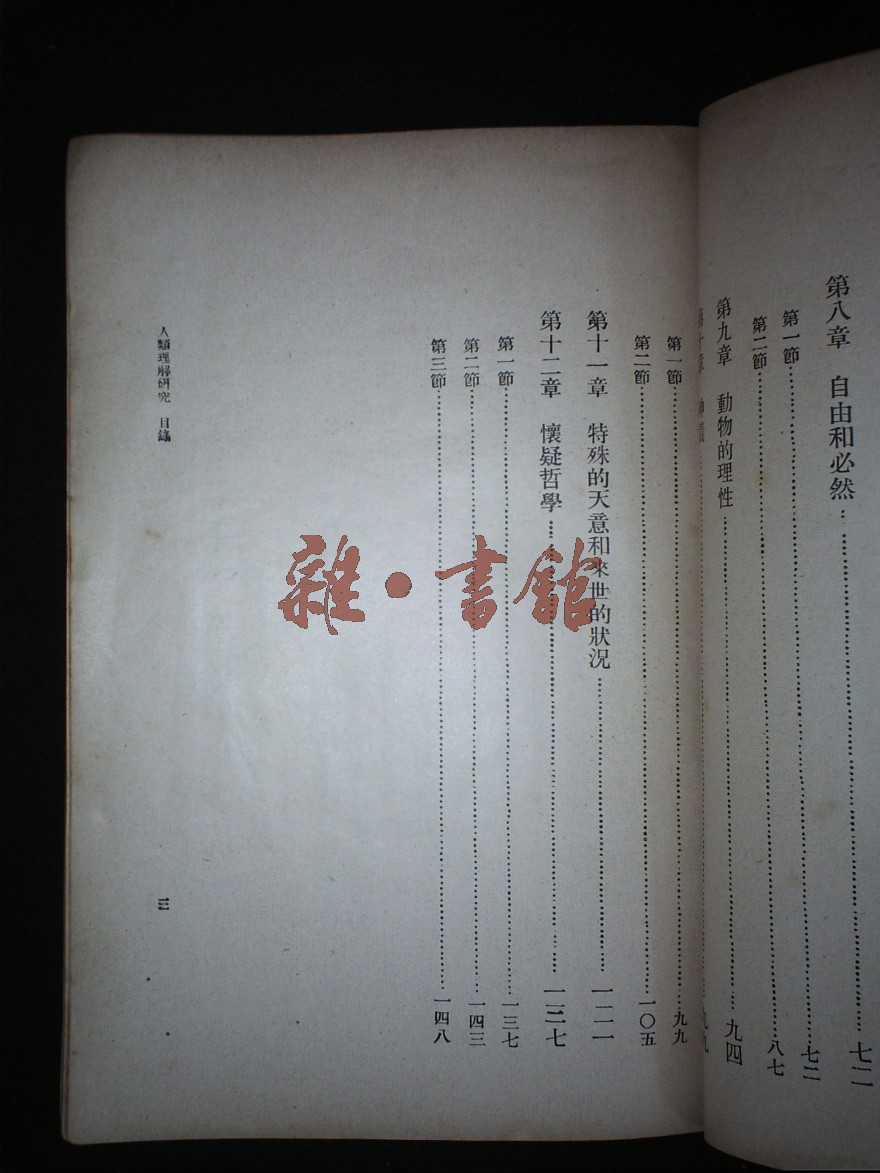 第八章 自由和必然……七二
第一節……七二
第二節……八七
第九章 動物的理性……九四
第十章……九九
第一節……九九
第二節……一〇五
第十一章 特殊的天意和來世的狀況……一二一
第十二章 懷疑哲學……一三七
第一節……一三七
第二節……一四三
第三節……一四八
人類理解研究 目錄
三
雜·書館